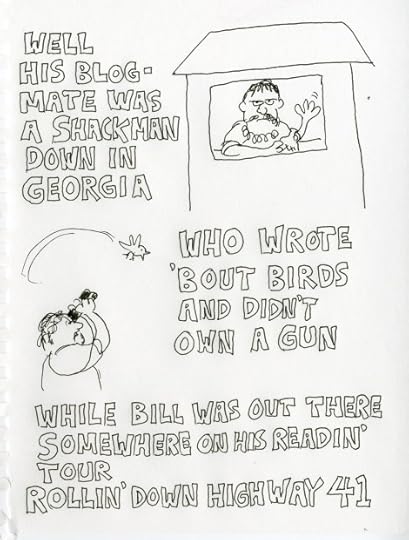 WELL
HIS BLOG-
MATE WAS
A SHACKMAN
DOWN IN
GEORGIA
WHO WROTE
'BOUT BIRDS
AND DIDN'T
OWN A GUN
WHILE BILL WAS OUT THERE
SOMEWHERE ON HIS READIN'
TOUR
ROLLIN' DOWN HIGHWAY 41